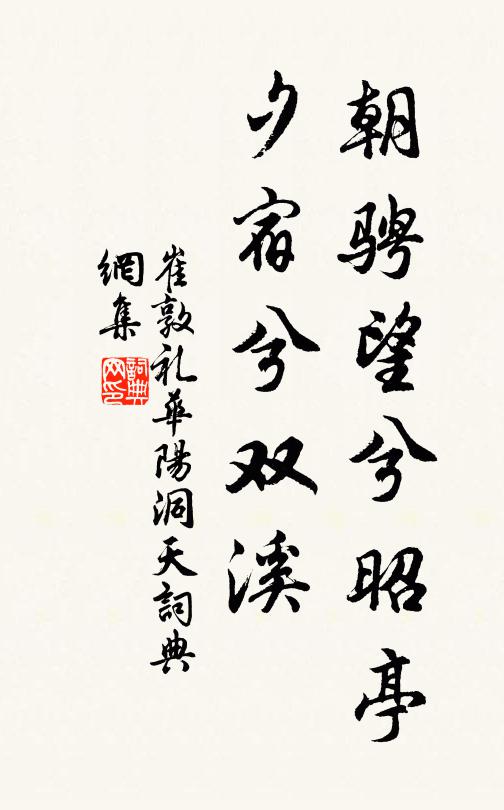 朝骋望兮昭亭
夕宿兮双溪
崔敦礼华陽洞天詞典
網集
詞典
网印